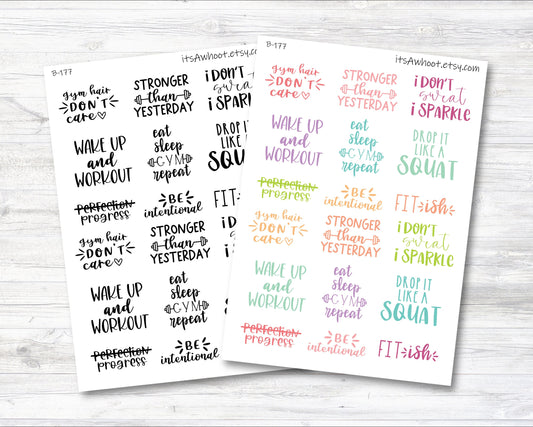 B-177
itsAwhoot.etsy.com
gym hair
DON'T
care
STRONGER
than
YESTERDAY
i DON'T
WAKE UP
and
WORKOUT
eat
sleep
GYM
repeat
DROP IT
LIKE A
SQUAT
PERFECTION
progress
BE
intentional
gym hair
DON'T
care
STRONGER
than
YESTERDAY
WAKE UP
and
WORKOUT
eat
sleep
GYM
repeat
PERFECTION
progress
BE
intentional
B-177
itsAwhoot.etsy.com
gym hair
DON'T
care
STRONGER
than
YESTERDAY
i DON'T
sweat
i SPARKLE
WAKE UP
and
WORKOUT
eat
sleep
GYM
repeat
DROP IT
LIKE A
SQUAT
PERFECTION
progress
BE
intentional
FIT-ish
gym hair
DON'T
care
STRONGER
than
YESTERDAY
i DON'T
sweat
i SPARKLE
WAKE UP
and
WORKOUT
eat
sleep
GYM
repeat
DROP IT
LIKE A
SQUAT
PERFECTION
progress
BE
intentional
FIT-ish